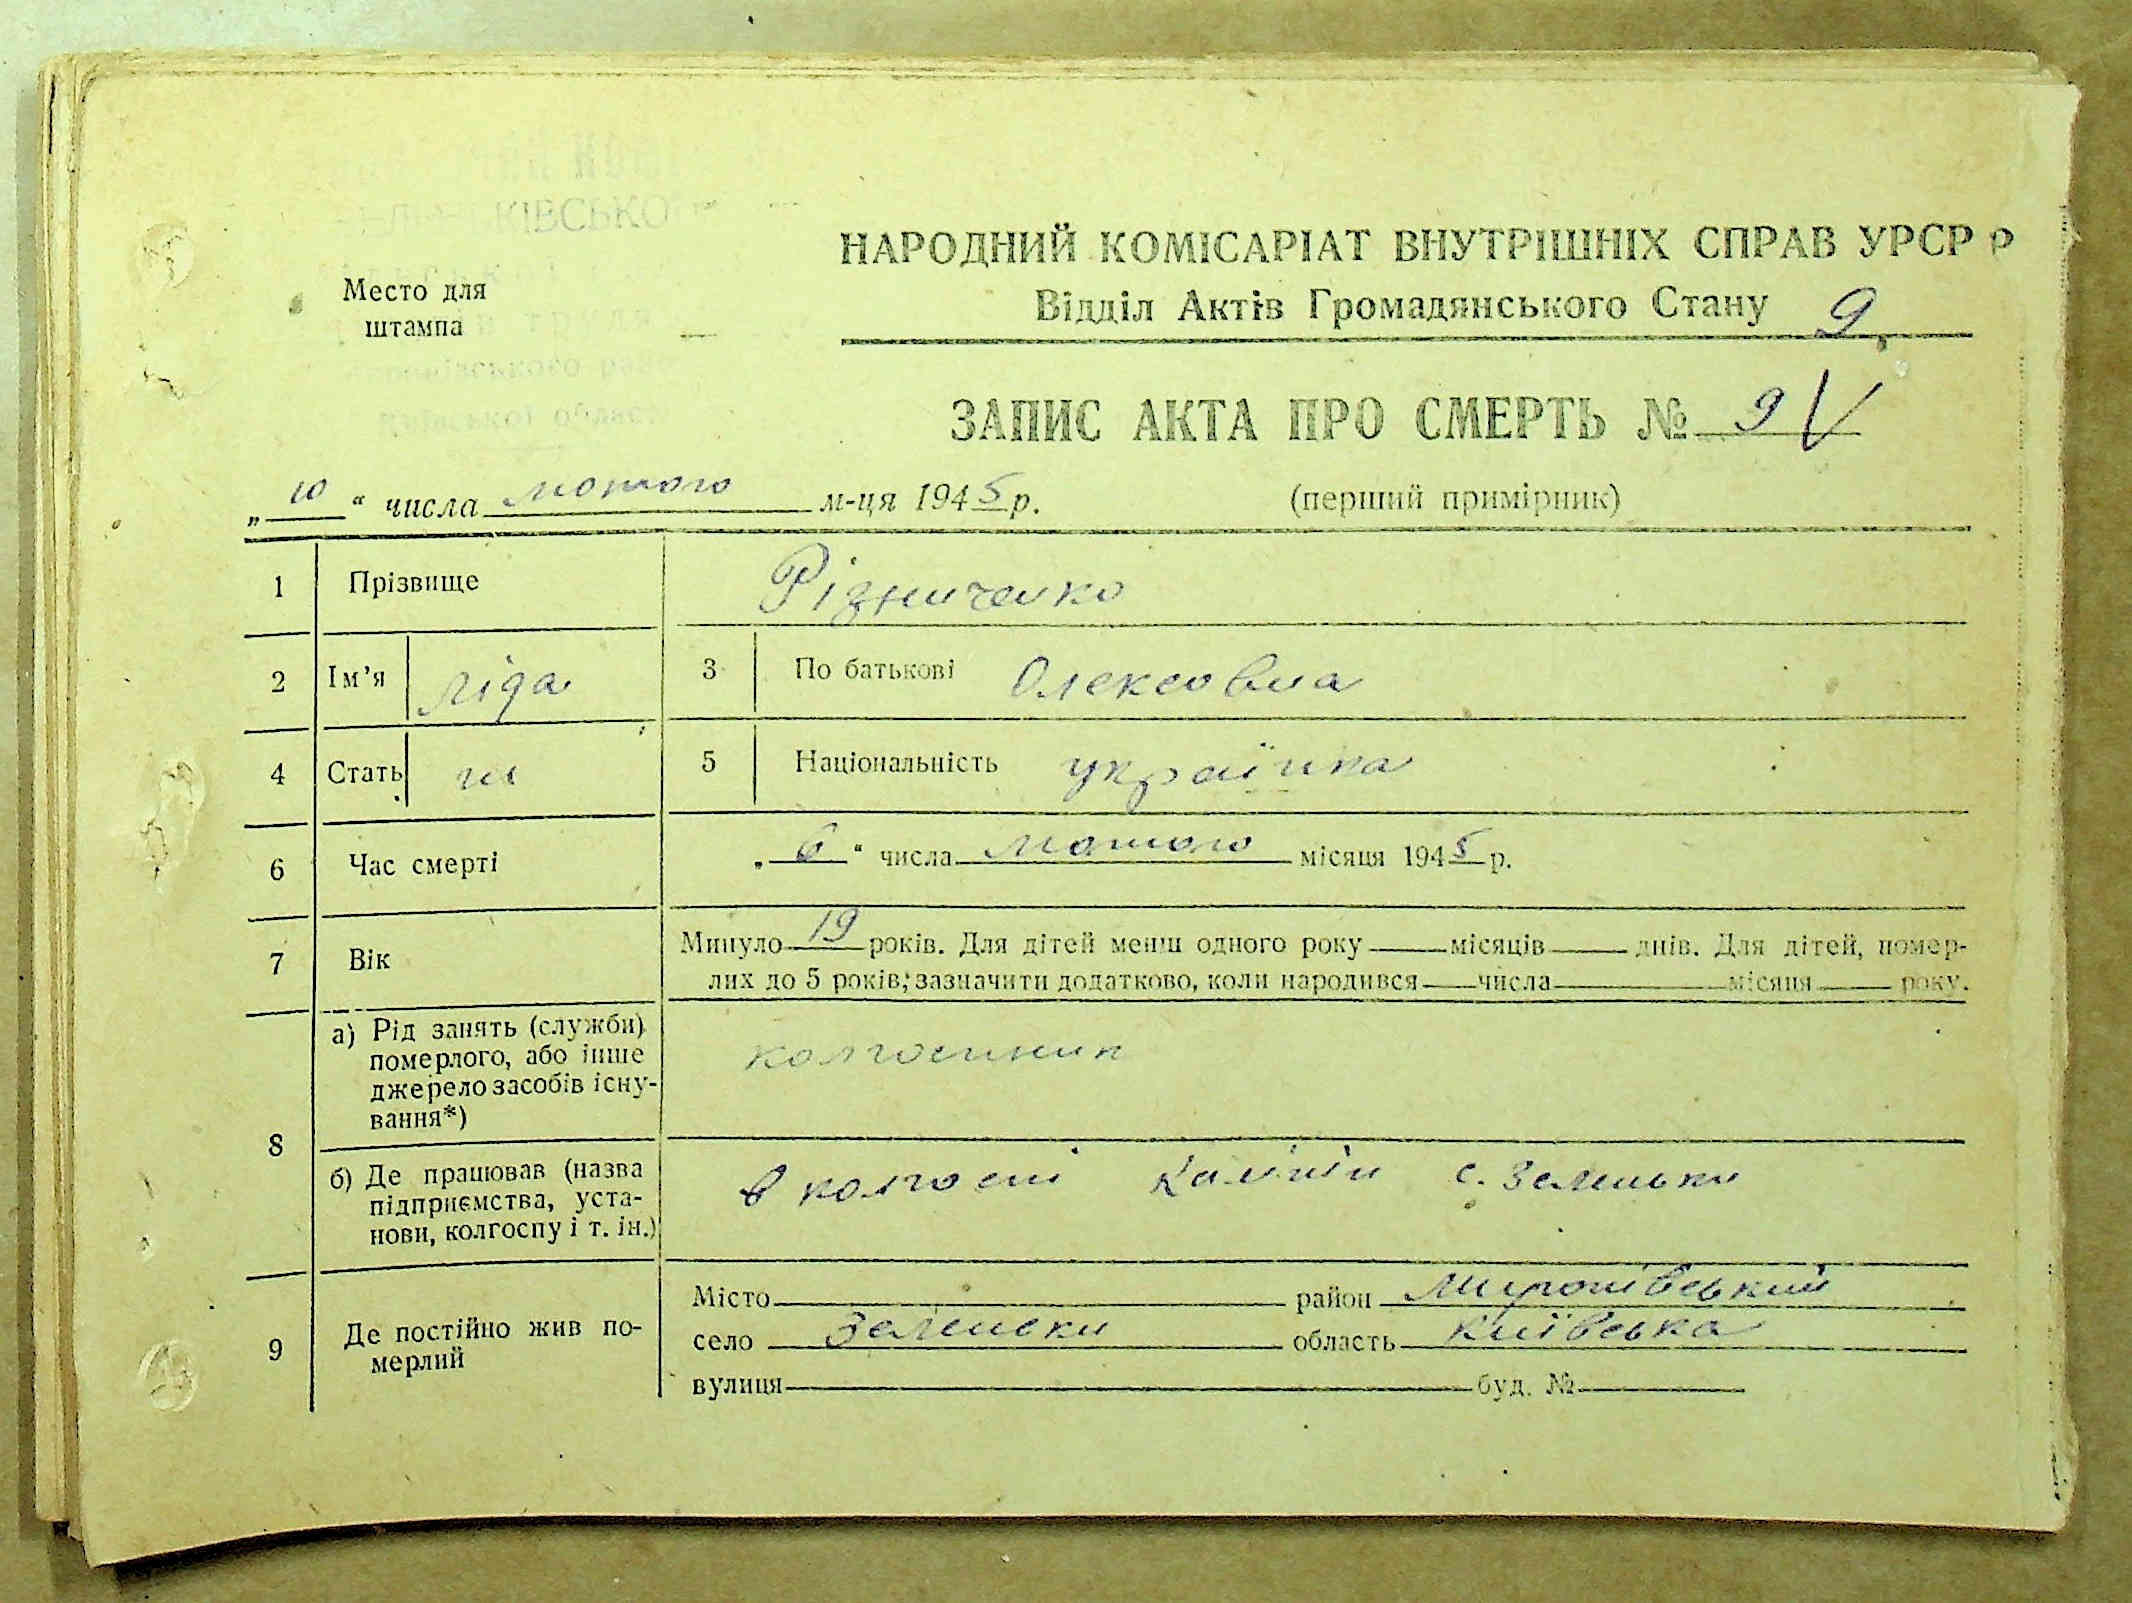 КІВСЬКО
Место для
штампа
НАРОДНИЙ КОМІСАРІАТ ВНУТРІШНІХ СПРАВ УРСР Р
Відділ Актів Громадянського Стану 9
ЗАПИС АКТА ПРО СМЕРТЬ № 9 V
„ 10 “ числа лютого м-ця 1945 р. (перший примірник)
1 Прізвище Різниченко
2 Ім'я Ліда 3 По батькові Олексовна
4 Стать ж 5 Національність українка
6 Час смерті „ 6 “ числа лютого місяця 1945 р.
7 Вік Минуло 19 років. Для дітей менш одного року місяців днів. Для дітей, помер-
лих до 5 років, зазначити додатково, коли народився числа місяця року.
8 а) Рід занять (служби)
померлого, або інше
джерело засобів існу-
вання*)
колгоспник
б) Де працював (назва
підприємства, уста-
нови, колгоспу і т. ін.)
в колгоспі Калінін с. Зеленьки
9 Де постійно жив по-
мерлий
Місто район Миронівський
село Зеленьки область Київська
вулиця буд. №